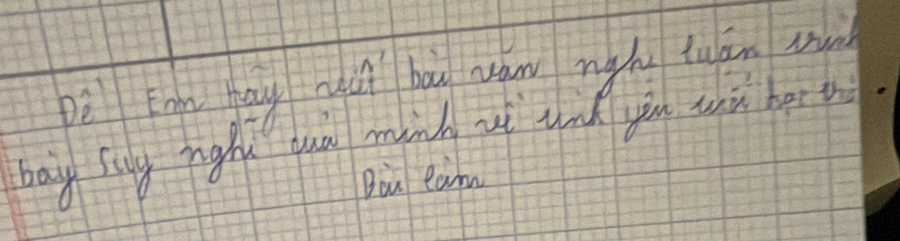 Đề: Em hãy viết bài văn nghị luận trình
bày suy nghĩ của mình về tình yêu tuổi học trò
Bài làm